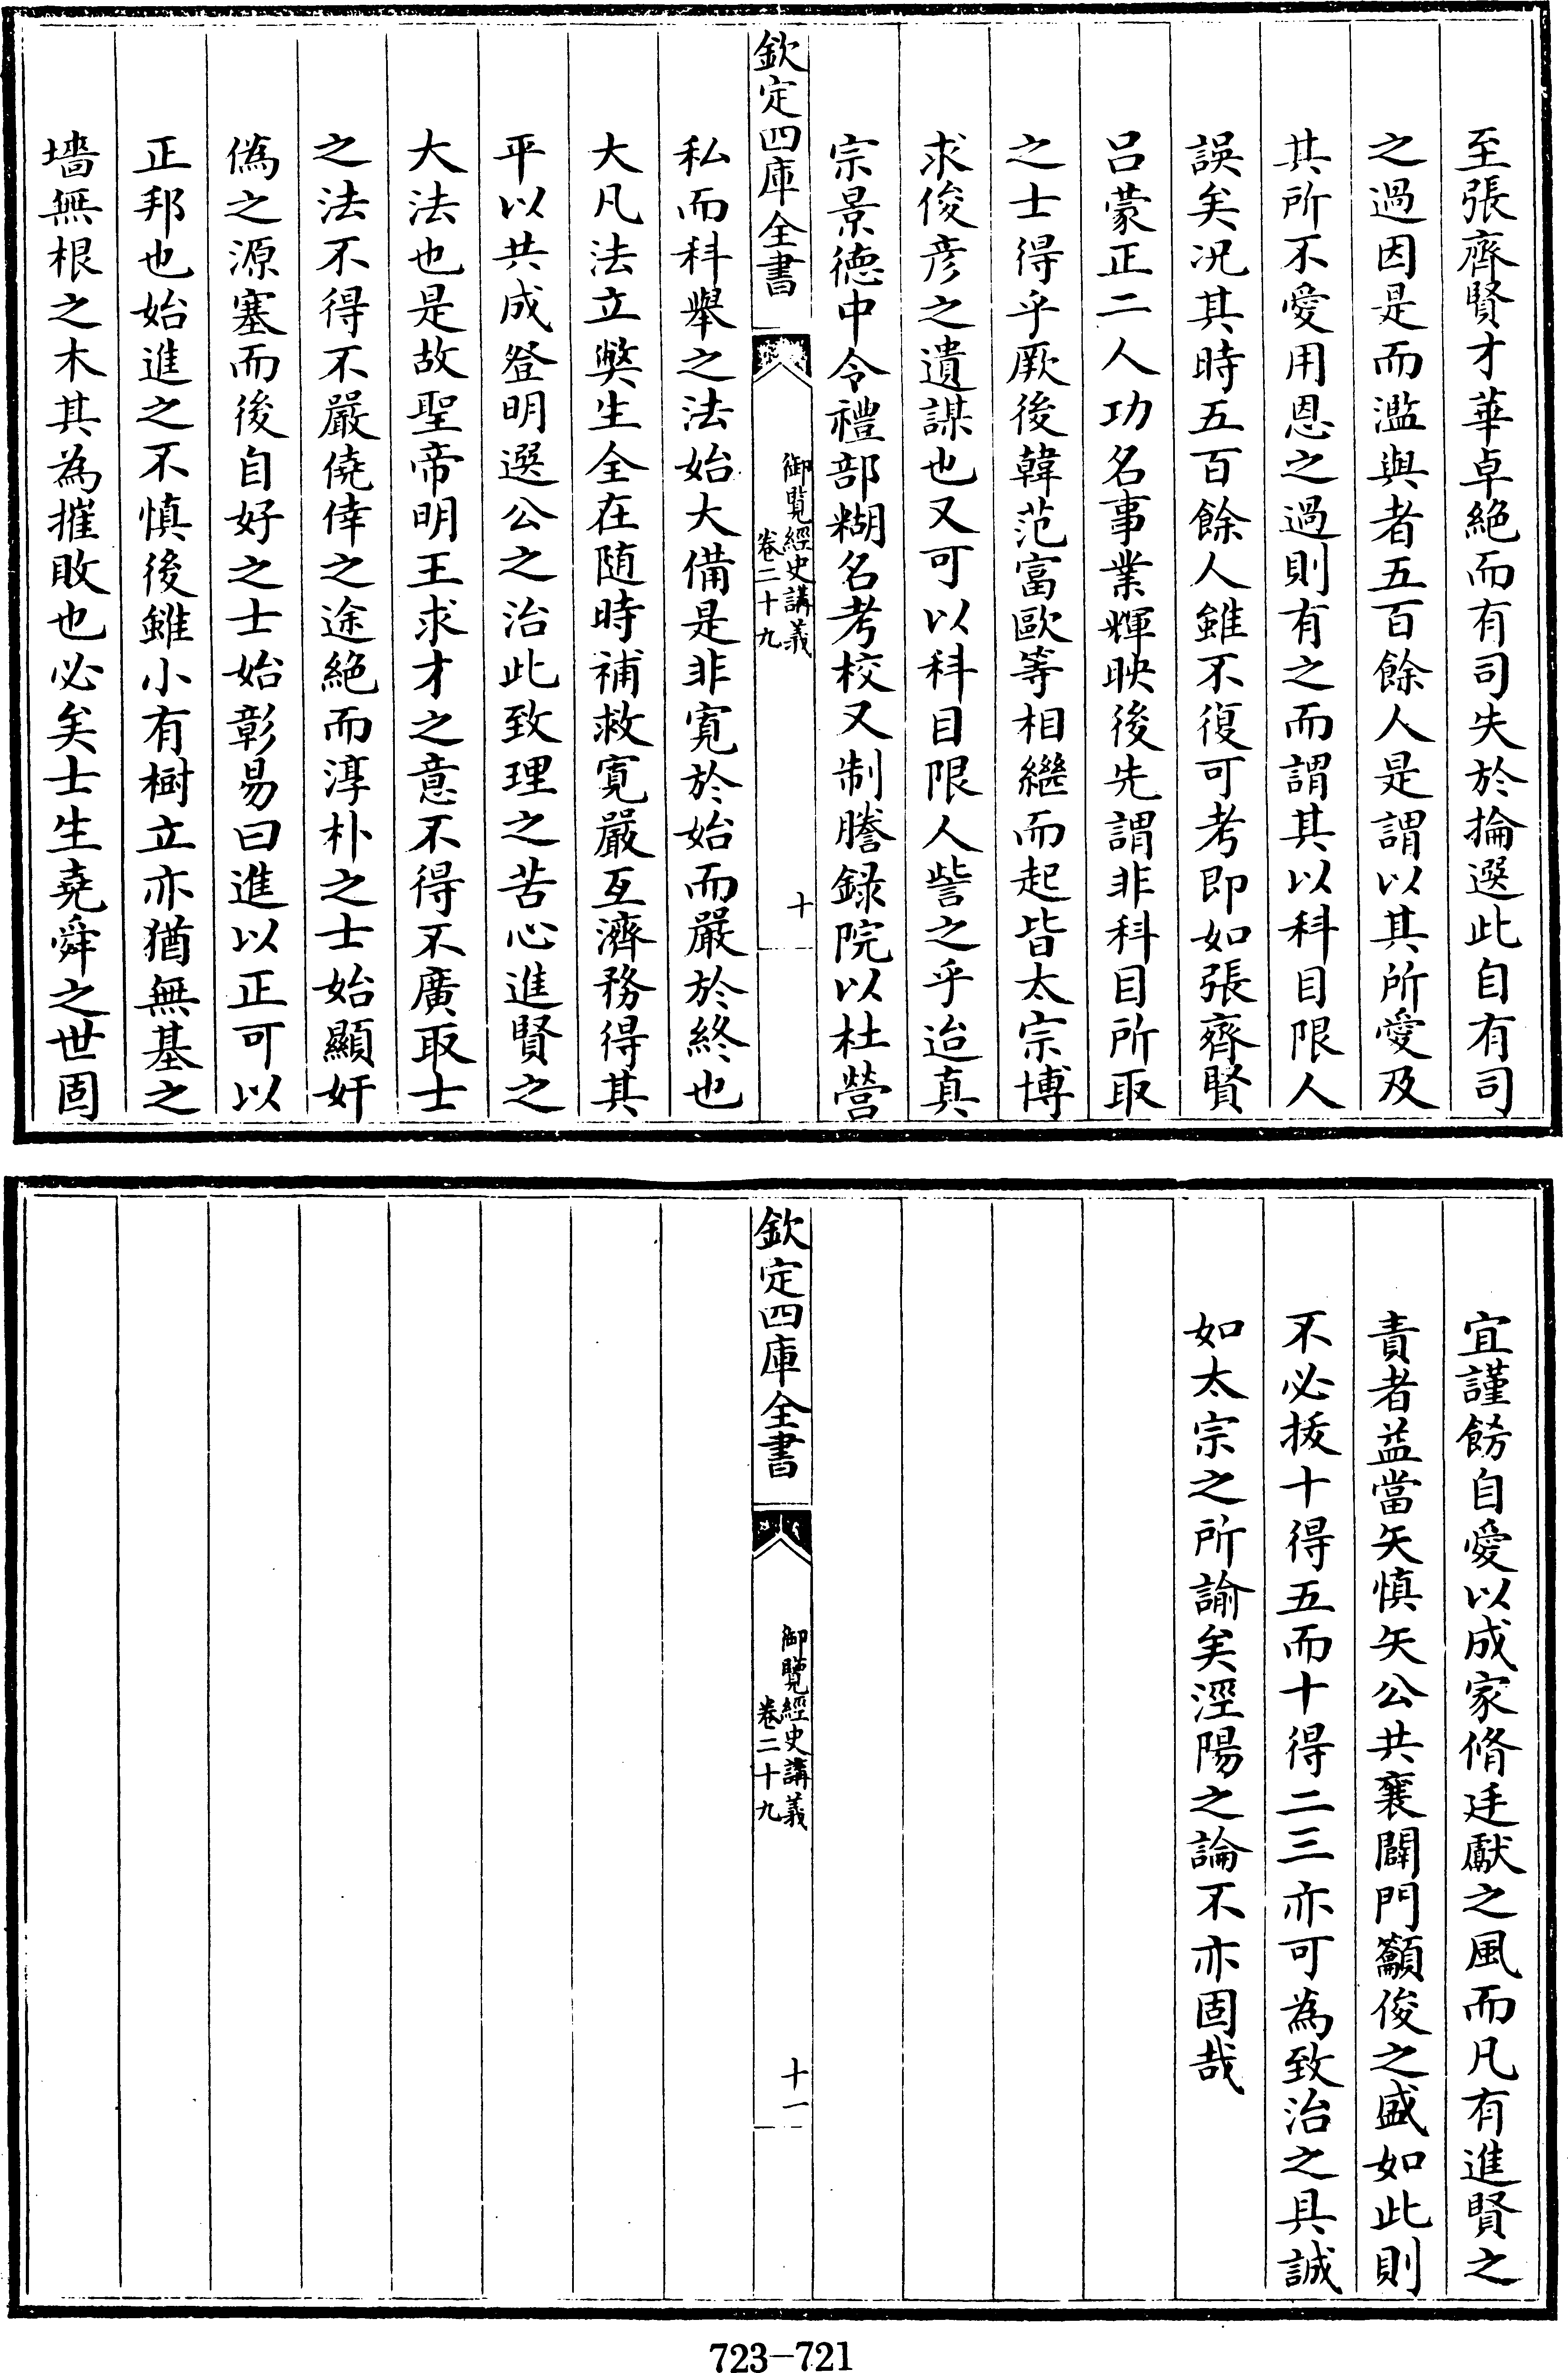 至張齊賢才華卓絶而有司失於掄選此自有司
之過因是而濫與者五百餘人是謂以其所愛及
其所不愛用恩之過則有之而謂其以科目限人
誤矣况其時五百餘人雖不復可考即如張齊賢
吕蒙正二人功名事業輝映後先謂非科目所取
之士得乎厥後韓范富歐等相繼而起皆太宗博
求俊彦之遺謀也又可以科目限人訾之乎迨真
宗景德中令禮部糊名考校又制謄録院以杜營
欽定四庫全書
御覽經史講義
卷二十九
十
私而科舉之法始大備是非寛於始而嚴於終也
大凡法立獘生全在随時補救寛嚴互濟務得其
平以共成登明選公之治此致理之苦心進賢之
大法也是故聖帝明王求才之意不得不廣取士
之法不得不嚴僥倖之途絶而淳朴之士始顯奸
偽之源塞而後自好之士始彰易曰進以正可以
正邦也始進之不慎後雖小有樹立亦猶無基之
墻無根之木其為摧敗也必矣士生堯舜之世固
宜謹飭自愛以成家脩廷獻之風而凡有進賢之
責者益當矢慎矢公共襄闢門籲俊之盛如此則
不必拔十得五而十得二三亦可為致治之具誠
如太宗之所諭矣涇陽之論不亦固哉
欽定四庫全書
御覽經史講義
卷二十九
十一
723-721